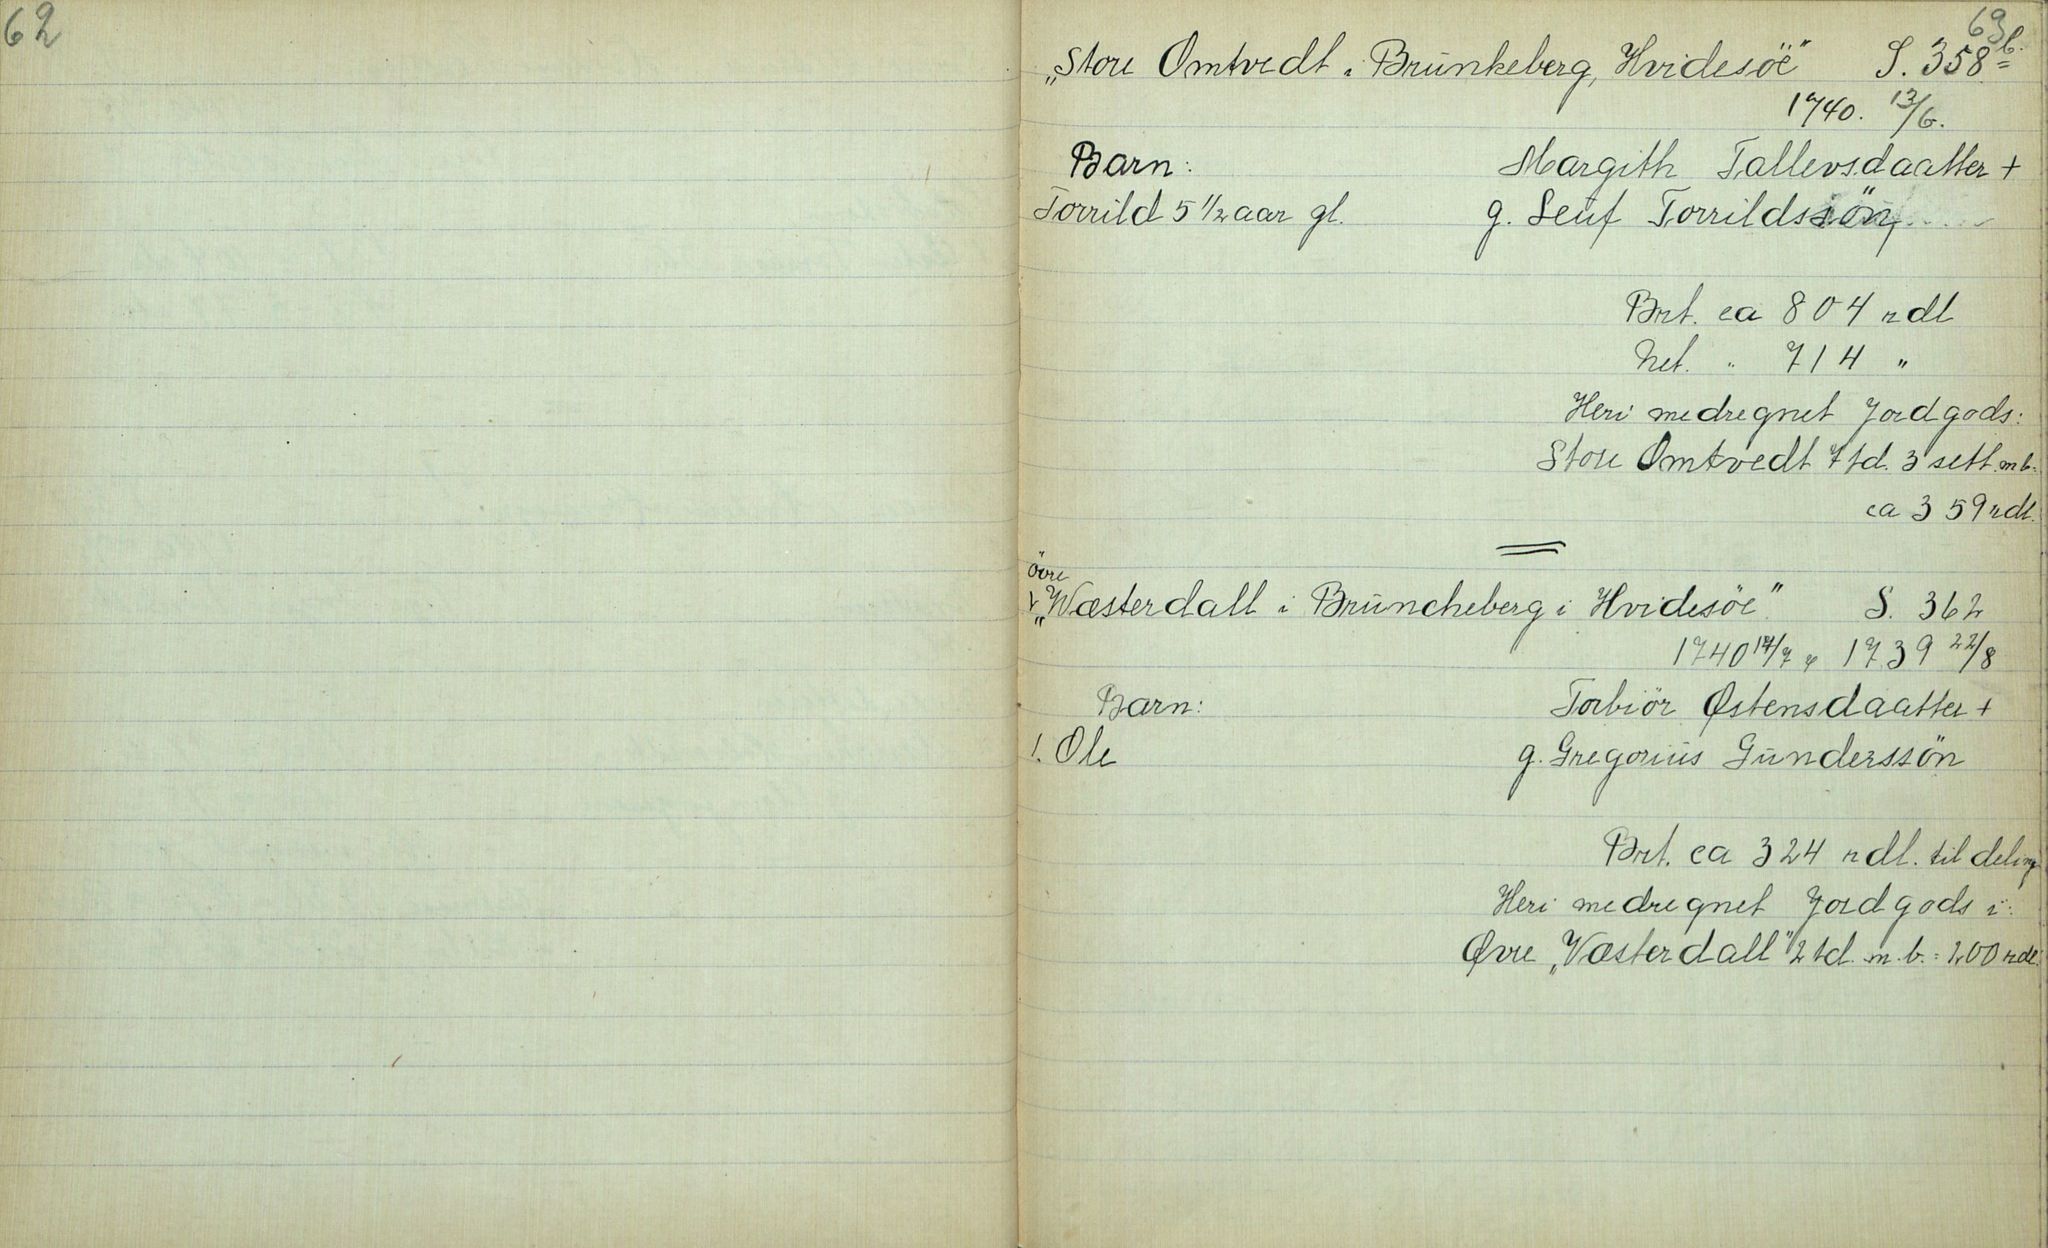 62
63
„Store Omtvedt i Brünkeberg, Hvidesöe" S. 358 b.
1740. 13/6.
Barn: Margith Tallevsdaatter +
Torrild 5 1/2 aar gl. g. Leüf Torrildssön
Brt. ca 804 rdl
Net. " 714 "
Heri medregnet Jordgods:
Store Omtvedt 7 td. 3 sett. m b.
ca 359 rdl.
övre
„Wæsterdall i Brüncheberg i Hvidesöe" S. 362
1740 17/7 & 1739 22/8
Barn: Torbiör Østensdaatter +
1. Ole g. Gregorius Gunderssön
Brt. ca 324 rdl. til deling
Heri medregnet Jordgods i:
Øvre „Væsterdall" 2 td. m. b. = 200 rdl.